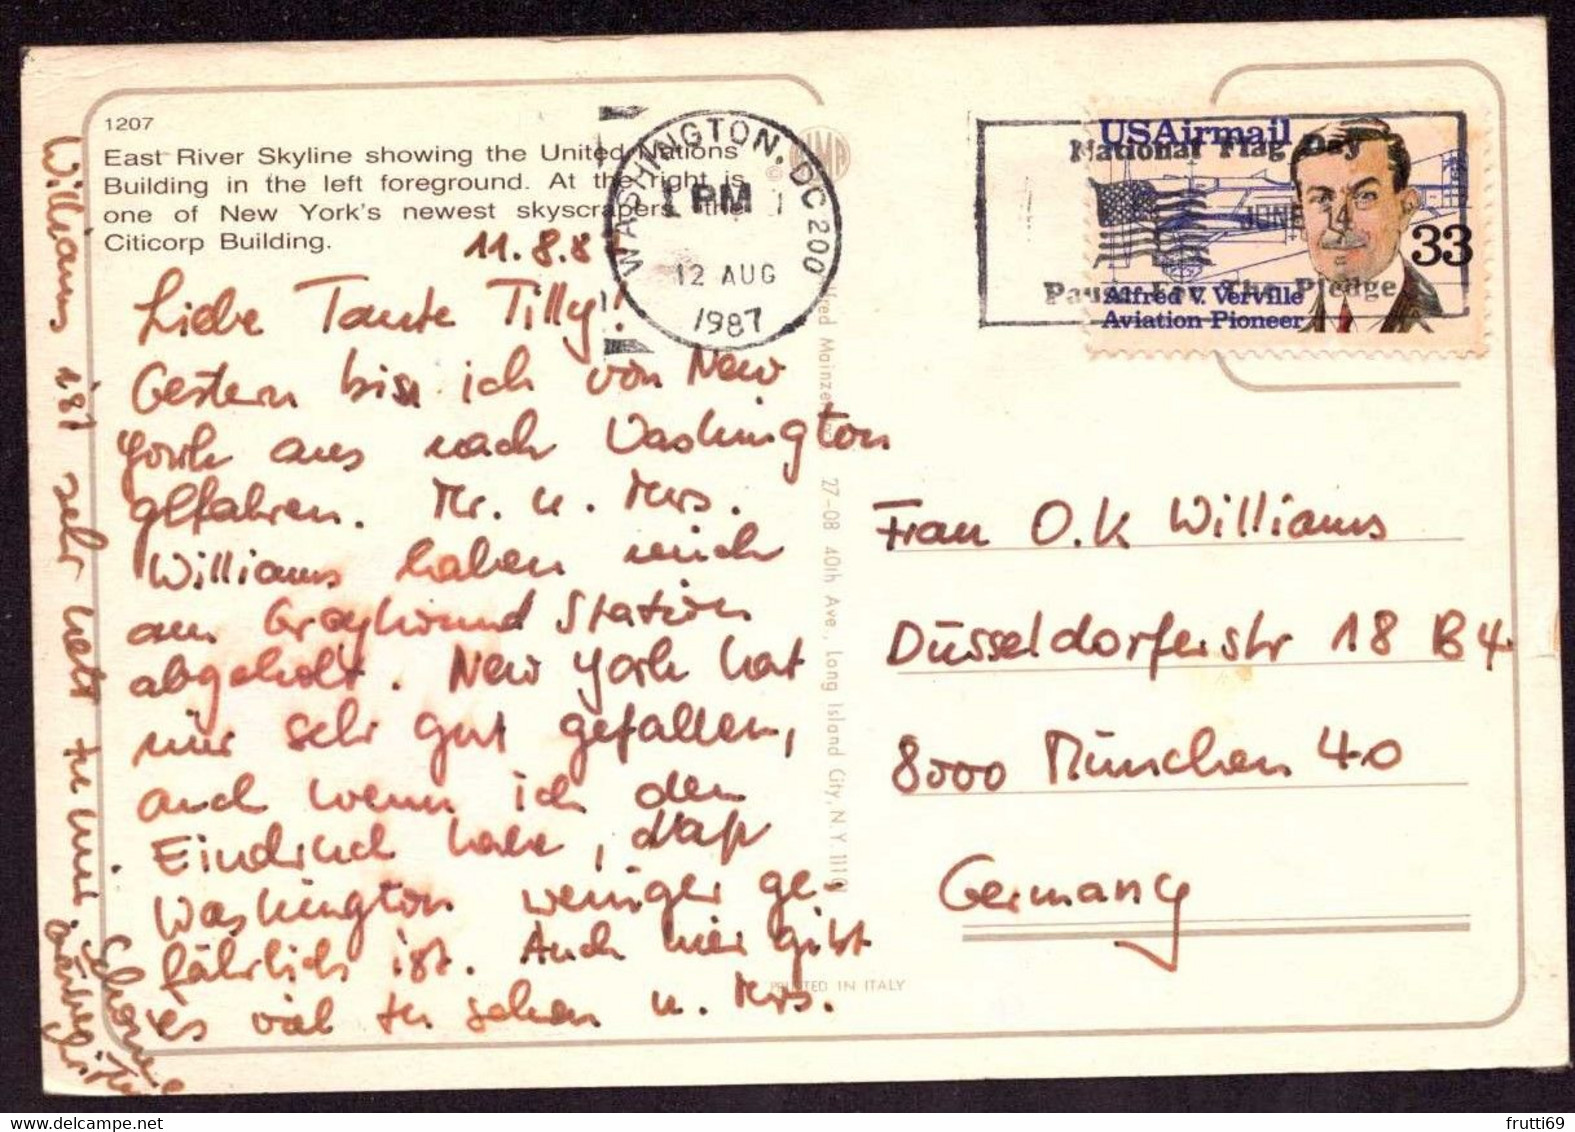 1207
East River Skyline showing the United Nations
Building in the left foreground. At the right is
one of New York's newest skyscrapers, the
Citicorp Building.
11.8.8
Liebe Tante Tilly!
Gestern bin ich von New
York aus nach Washington
gefahren. Mr. u. Mrs.
Williams haben mich
am Greyhound Station
abgeholt. New York hat
mir sehr gut gefallen,
auch wenn ich den
Eindruck habe, daß
Washington weniger ge-
fährlich ist. Auch hier gibt
es viel zu sehen u. Mrs.
Williams ist sehr nett zu mir.
Schöne
WASHINGTON, DC 200
1 PM
12 AUG
1987
National Flag Day
JUNE 14
Pause For The Pledge
USAirmail
33
Alfred V. Verville
Aviation Pioneer
Frau O.K Williams
Düsseldorferstr 18 B4
8000 München 40
Germany
27-08 40th Ave., Long Island City, N.Y. 111
PRINTED IN ITALY
frutti69